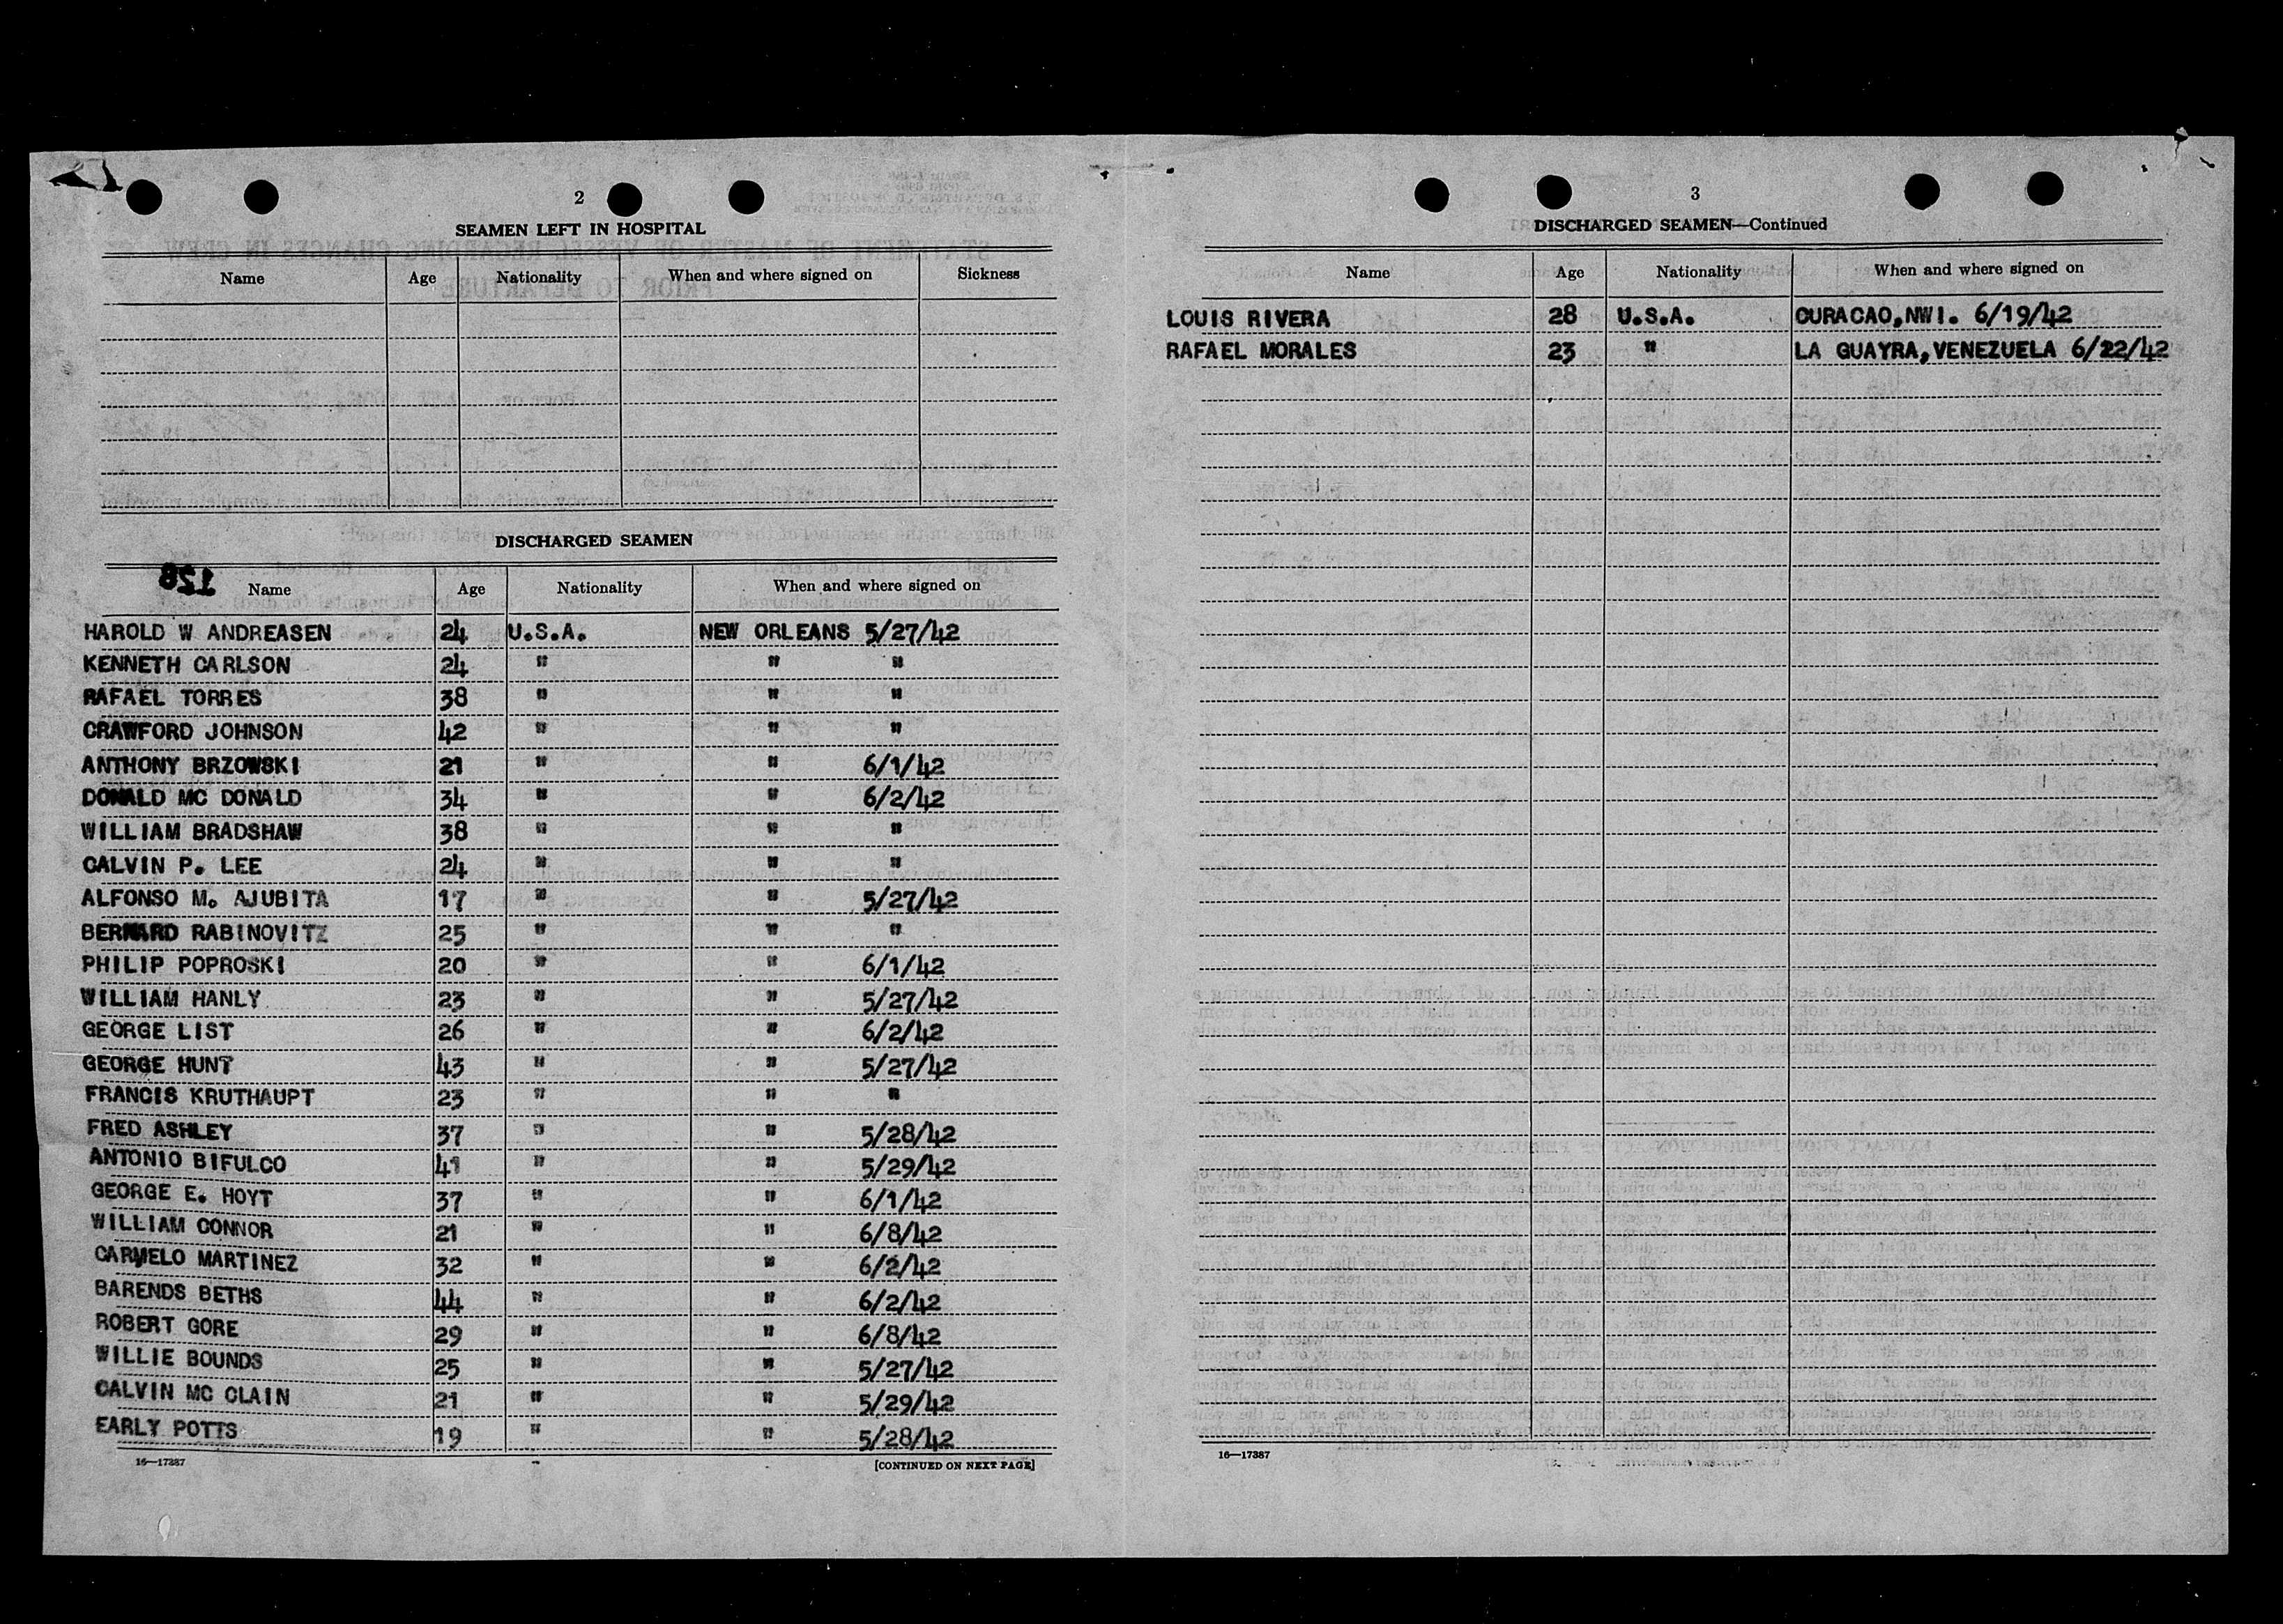 2
SEAMEN LEFT IN HOSPITAL
Name Age Nationality When and where signed on Sickness
DISCHARGED SEAMEN
128
Name Age Nationality When and where signed on
HAROLD W ANDREASEN 24 U.S.A. NEW ORLEANS 5/27/42
KENNETH CARLSON 24 " " "
RAFAEL TORRES 38 " " "
CRAWFORD JOHNSON 42 " " "
ANTHONY BRZOWSKI 21 " " 6/1/42
DONALD MC DONALD 34 " " 6/2/42
WILLIAM BRADSHAW 38 " " "
CALVIN P. LEE 24 " " "
ALFONSO M. AJUBITA 17 " " 5/27/42
BERNARD RABINOVITZ 25 " " "
PHILIP POPROSKI 20 " " 6/1/42
WILLIAM HANLY 23 " " 5/27/42
GEORGE LIST 26 " " 6/2/42
GEORGE HUNT 43 " " 5/27/42
FRANCIS KRUTHAUPT 23 " " "
FRED ASHLEY 37 " " 5/28/42
ANTONIO BIFULCO 41 " " 5/29/42
GEORGE E. HOYT 37 " " 6/1/42
WILLIAM CONNOR 21 " " 6/8/42
CARMELO MARTINEZ 32 " " 6/2/42
BARENDS BETHS 44 " " 6/2/42
ROBERT GORE 29 " " 6/8/42
WILLIE BOUNDS 25 " " 5/27/42
CALVIN MC CLAIN 21 " " 5/29/42
EARLY POTTS 19 " " 5/28/42
16—17387
[CONTINUED ON NEXT PAGE]
3
DISCHARGED SEAMEN—Continued
Name Age Nationality When and where signed on
LOUIS RIVERA 28 U.S.A. CURACAO,NWI. 6/19/42
RAFAEL MORALES 23 " LA GUAYRA,VENEZUELA 6/22/42
16—17387